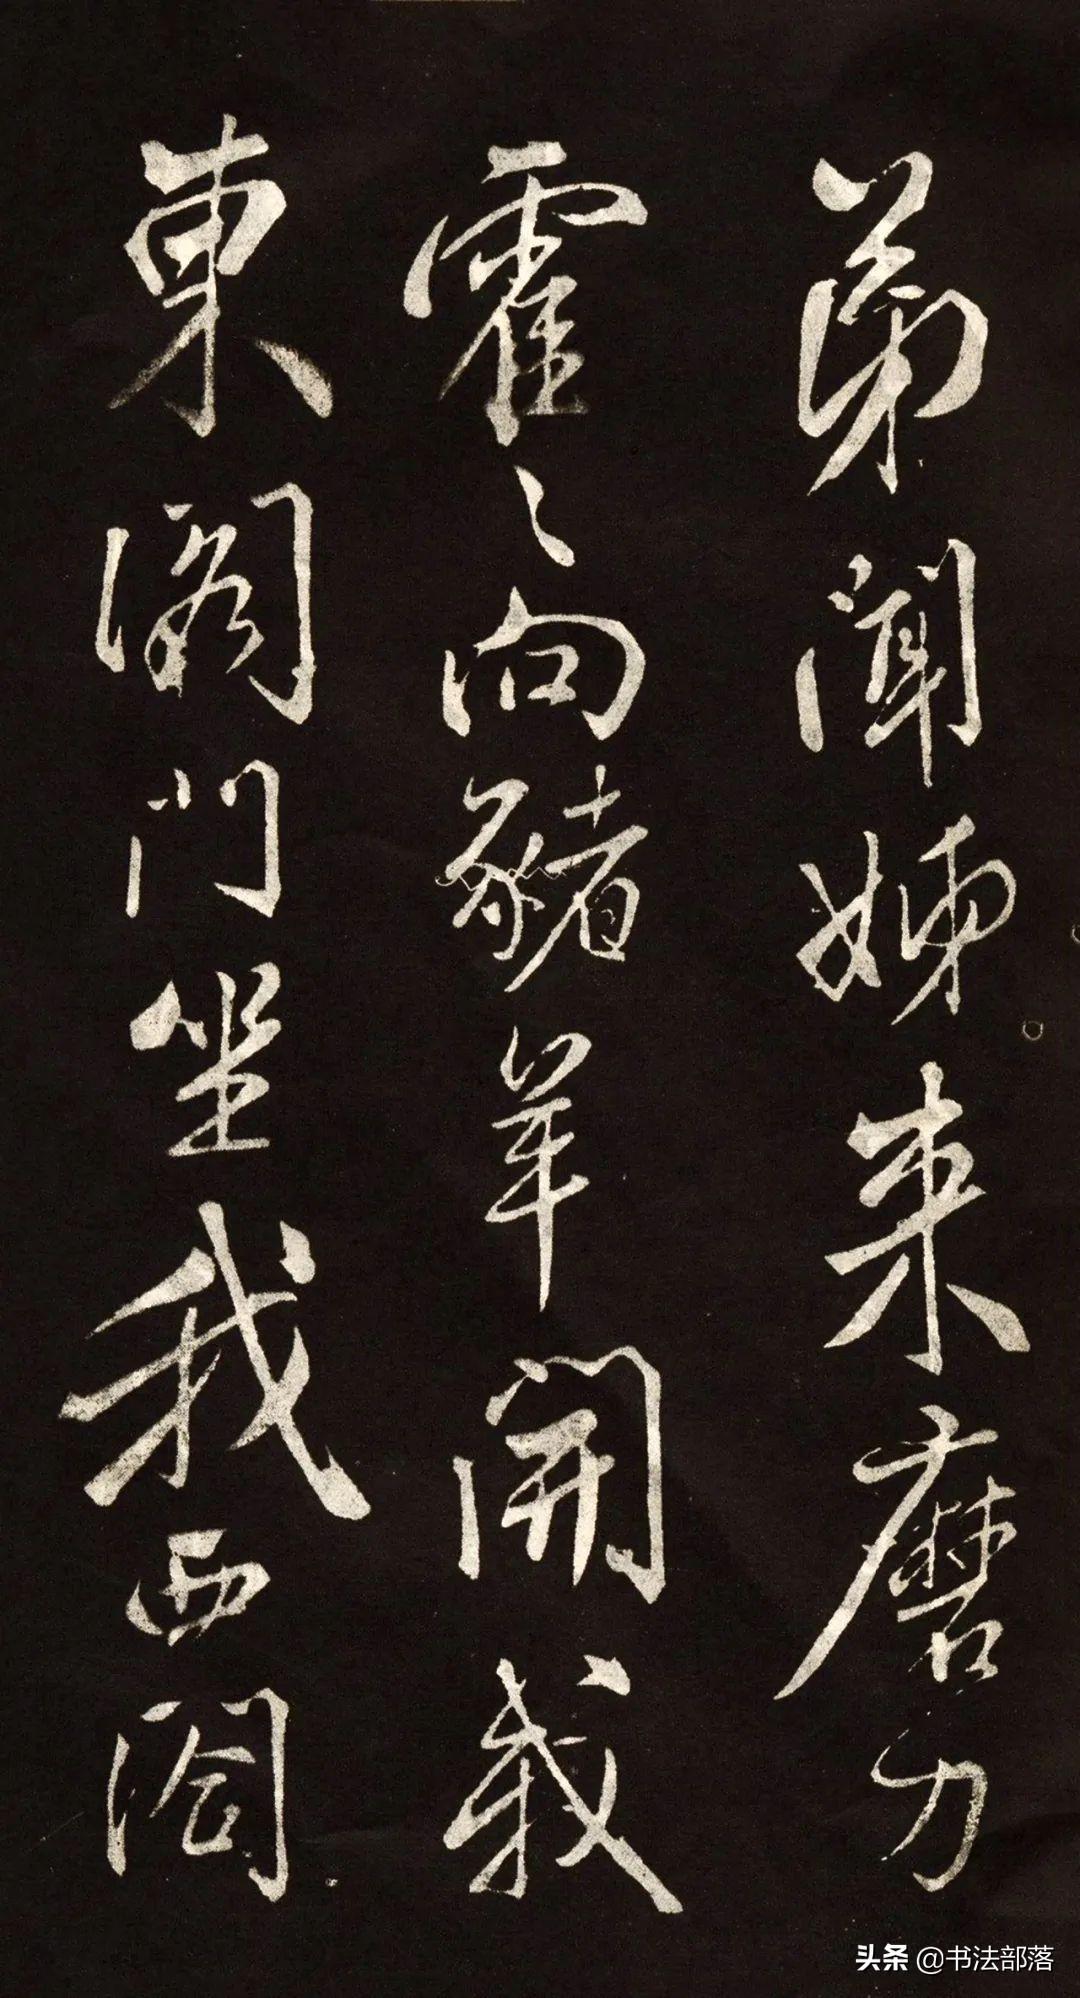 弟聞姊来磨刀
霍〻向豬羊開我
東閣門坐我西閤
头条 @书法部落